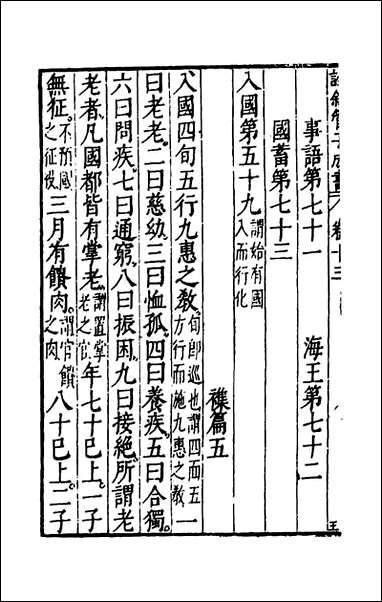 詮叙管子成書 卷十三
事語第七十一 海王第七十二
國蓄第七十三
入國第五十九 謂始有國入而行化
襍篇五
入國四旬五行九惠之教 旬即巡也謂四面五方行而施九惠之教 一
曰老老二曰慈幼三曰恤孤四曰養疾五曰合獨
六曰問疾七曰通窮八曰振困九曰接絶所謂老
老者凡國都皆有掌老 謂置掌老之官 年七十已上一子
無征 不預國之征役 三月有饋肉 謂官饋之肉 八十已上二子